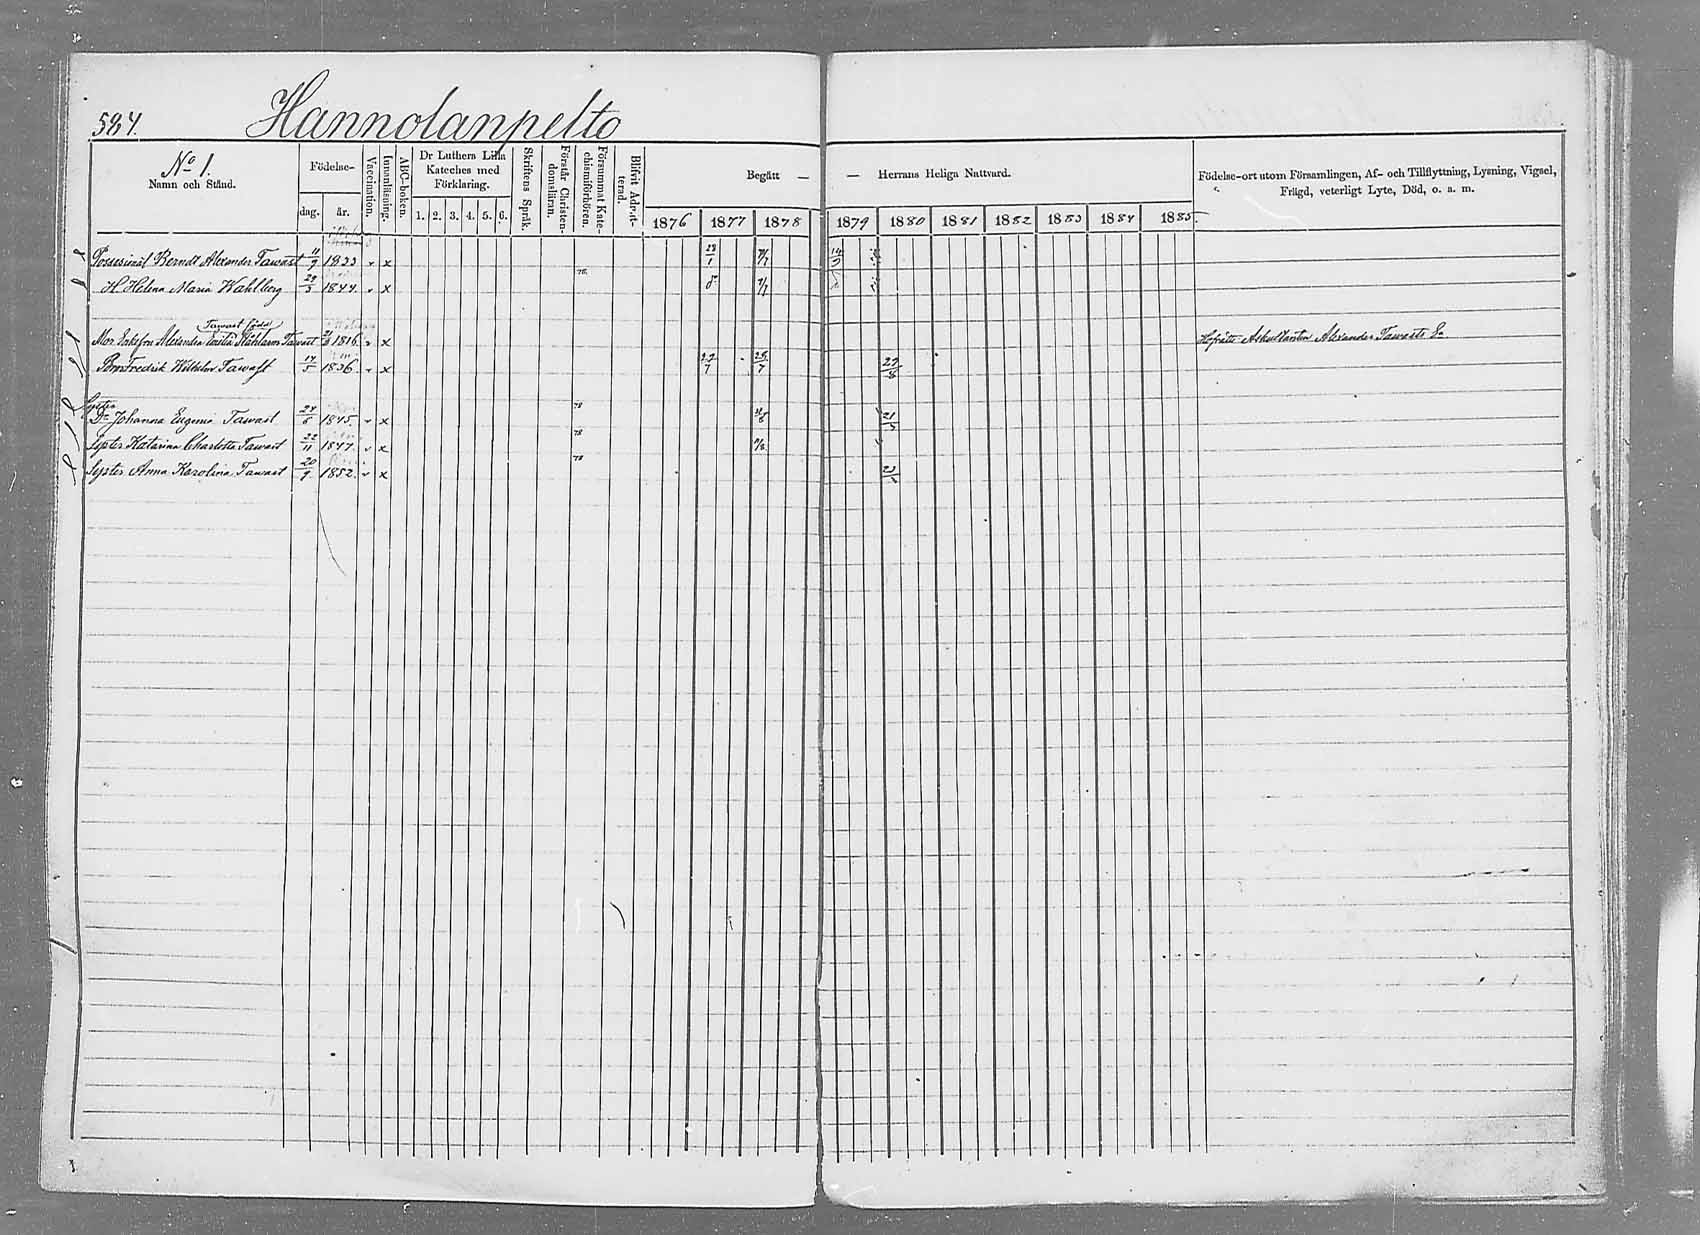 584.
Hannolanpelto
No 1.
Namn och Stånd.
Födelse-
dag. år.
Vaccination.
Innanläsning.
ABC-boken.
Dr Luthers Lilla
Kateches med
Förklaring.
1. 2. 3. 4. 5. 6.
Skriftens Språk.
Förstår Christen-
domsläran.
Försummat Kate-
chismiförhören.
Blifvit Admit-
terad.
Begått — — Herrans Heliga Nattvard.
1876 1877 1878 1879 1880 1881 1882 1883 1884 1885
Födelse-ort utom Församlingen, Af- och Tillflyttning, Lysning, Vigsel,
Frägd, veterligt Lyte, Död, o. a. m.
Berndt Alexander Tawast 11/9 1833 x 28/1
H. Helena Maria Wahlberg 29/3 1844. x 78.
Tawast född
Mor. Enkefru Alexandra Emilia Stålhane Tawast 1816. x Hofrätts Auskultanten Alexander Tawasts
Bror Fredrik Wilhelm Tawast 17/5 1836 x 22/7 28/7 29/8
Syster
Dr. Johanna Eugenia Tawast 24/6 1845. x 78
Syster Katarina Charlotta Tawast 22/11 1847. x 78
Syster Anna Karolina Tawast 20/9 1852. x 78